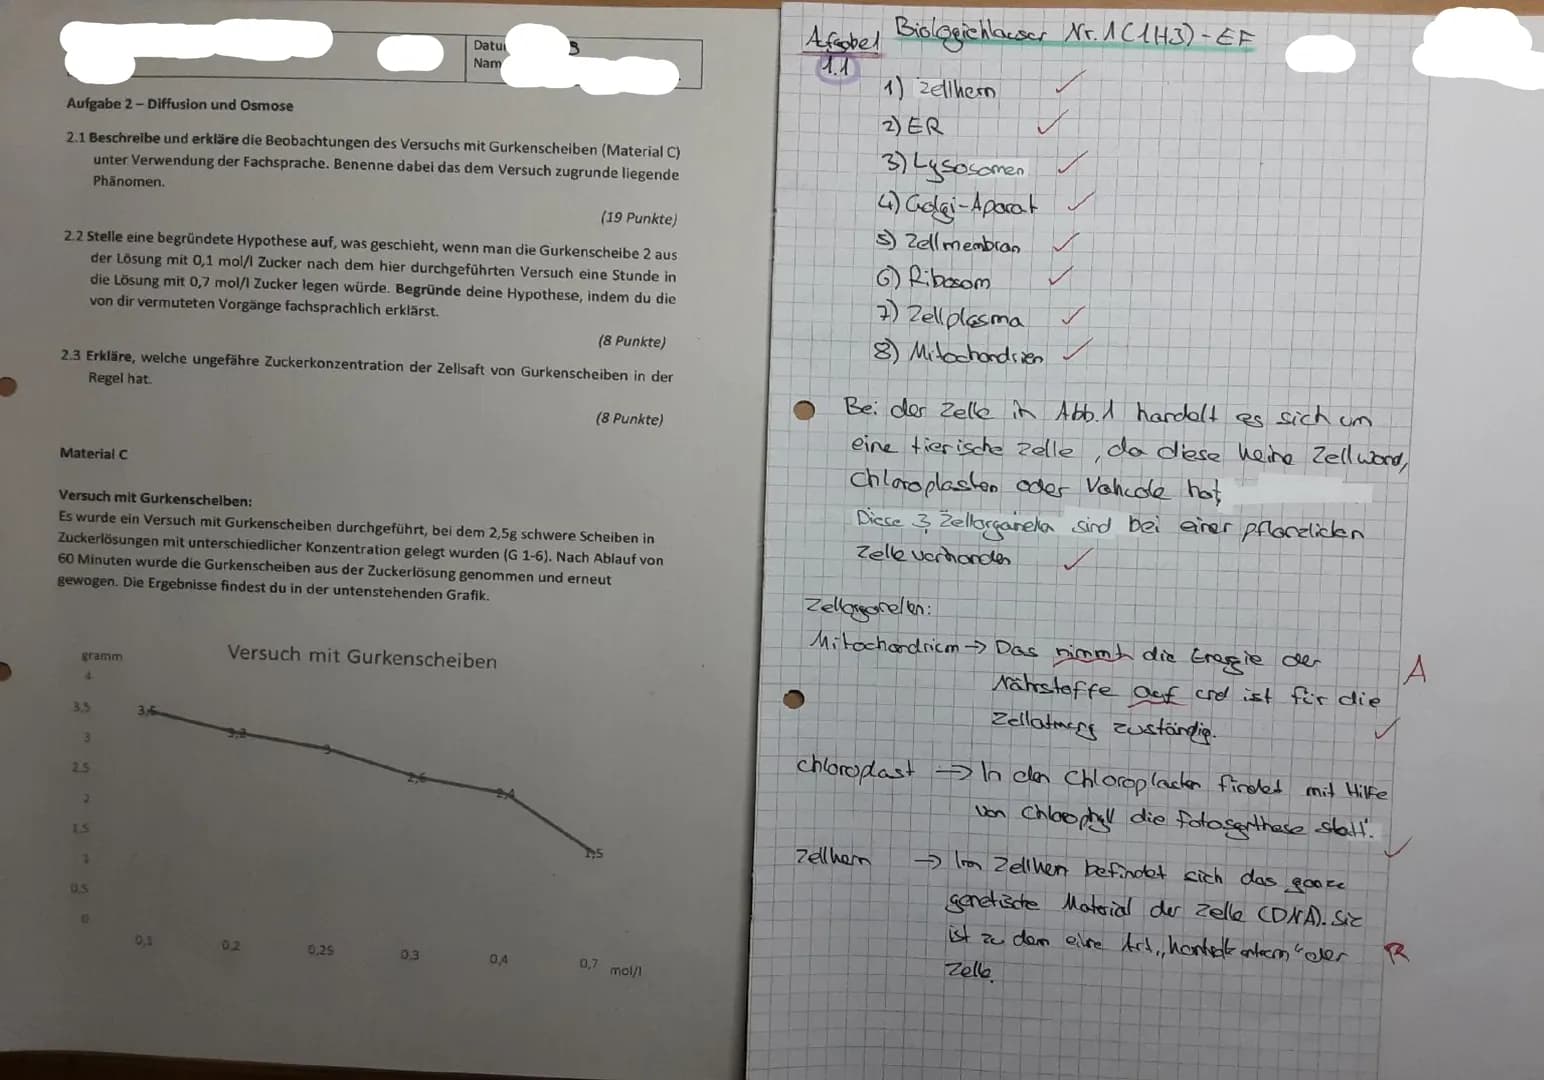 Datu
Nam
Aufgabe 2 – Diffusion und Osmose
2.1 Beschreibe und erkläre die Beobachtungen des Versuchs mit Gurkenscheiben (Material C)
unter Verwendung der Fachsprache. Benenne dabei das dem Versuch zugrunde liegende
Phänomen.
(19 Punkte)
2.2 Stelle eine begründete Hypothese auf, was geschieht, wenn man die Gurkenscheibe 2 aus
der Lösung mit 0,1 mol/l Zucker nach dem hier durchgeführten Versuch eine Stunde in
die Lösung mit 0,7 mol/l Zucker legen würde. Begründe deine Hypothese, indem du die
von dir vermuteten Vorgänge fachsprachlich erklärst.
(8 Punkte)
2.3 Erkläre, welche ungefähre Zuckerkonzentration der Zellsaft von Gurkenscheiben in der
Regel hat.
(8 Punkte)
Material C
Versuch mit Gurkenscheiben:
Es wurde ein Versuch mit Gurkenscheiben durchgeführt, bei dem 2,5g schwere Scheiben in
Zuckerlösungen mit unterschiedlicher Konzentration gelegt wurden (G 1-6). Nach Ablauf von
60 Minuten wurde die Gurkenscheiben aus der Zuckerlösung genommen und erneut
gewogen. Die Ergebnisse findest du in der untenstehenden Grafik.
Versuch mit Gurkenscheiben
gramm
4
3,5
3
2,5
2
1,5
1
0,5
0
3,2
3
2,6
2,4
1,5
0,1
0,2
0,25
0,3
0,4
0,7
mol/l
Biologieklausur Nr. 1 (1H3) - EF
1.1
1) Zellkern
2) ER
3) Lysosomen
4) Golgi-Aparat
5) Zellmembran
6) Ribosom
7) Zellplasma
8) Mitochondrien
Bei der Zelle in Abb. 1 handelt es sich um
eine tierische Zelle, da diese keine Zellwand,
Chloroplasten oder Vakuole hat,
Diese 3 Zellorganelen sind bei einer pflanzlichen
Zelle vorhanden
Zellorganelen:
Mitochondrium → Das nimmt die Energie der
Nährstoffe auf und ist für die
Zellatmung zuständig.
A
Chloroplast → In den Chloroplasten findet mit Hilfe
von Chlorophyll die Fotosynthese statt.
Zellkern → Im Zellkern befindet sich das ganze
genetische Material der Zelle (DNA). Sie
ist zu dem eine Art "der
R
Zelle.